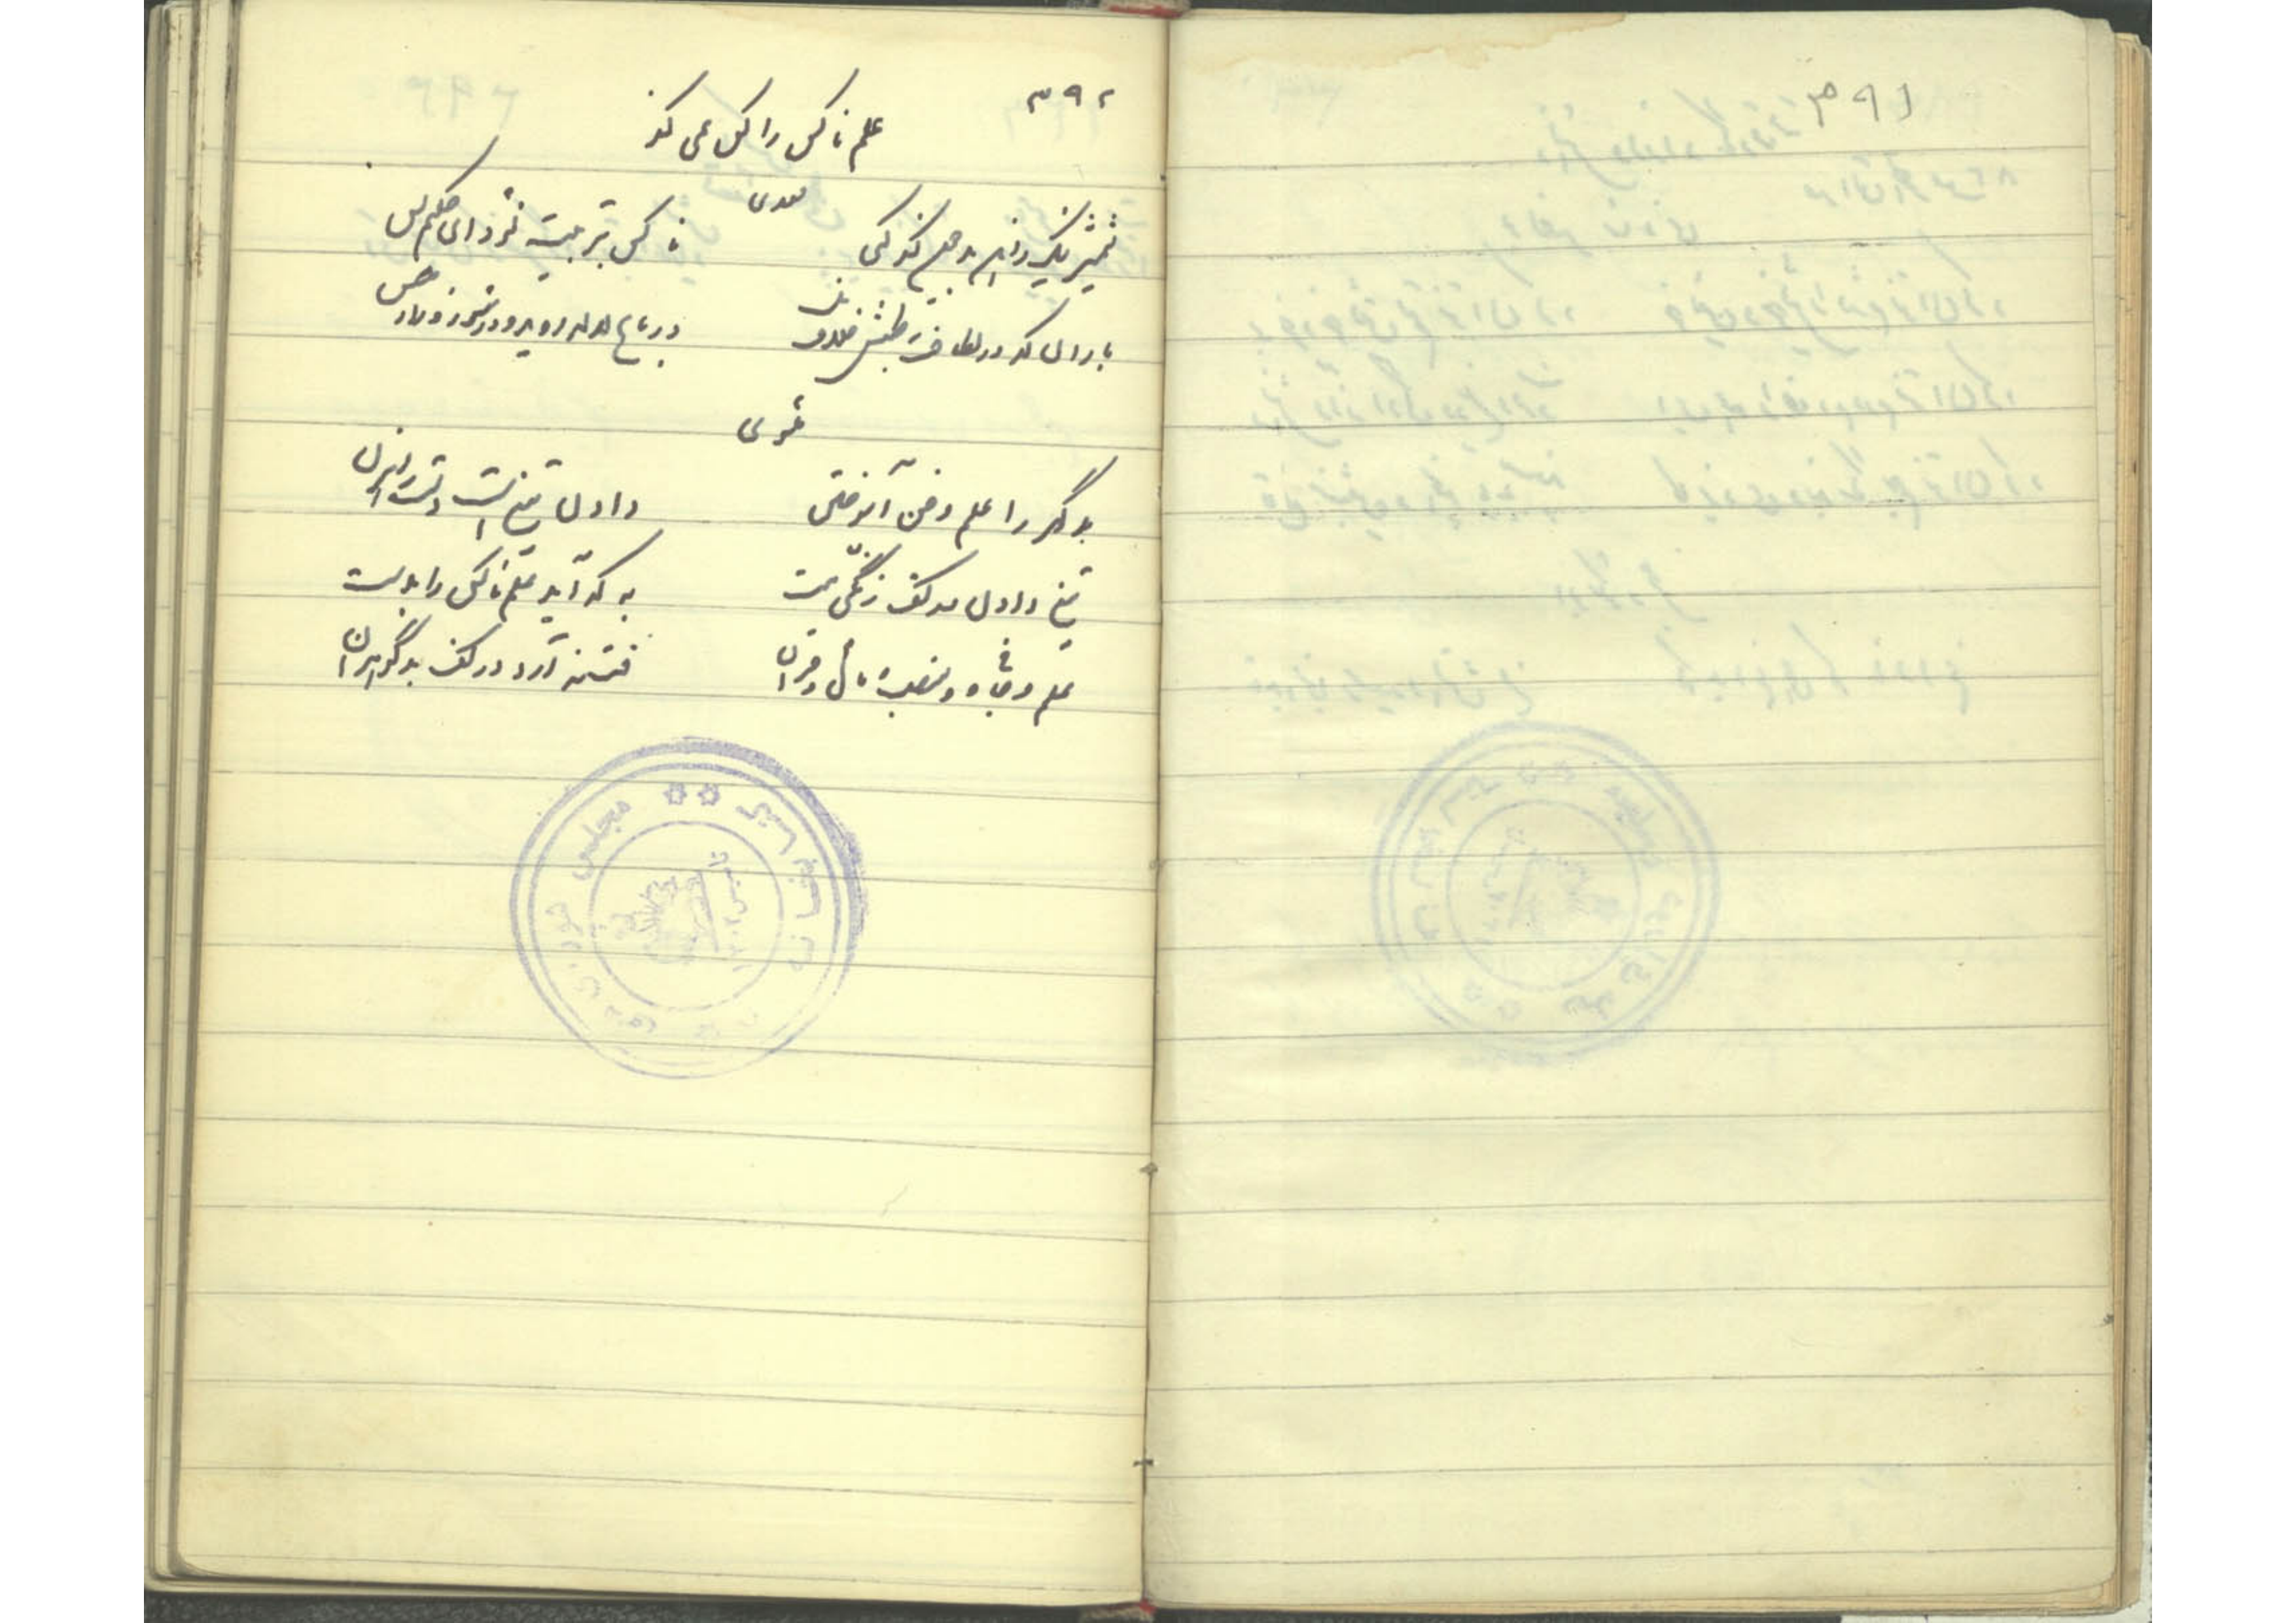 ۳۹۱
۳۹۲
علم ناکس را کس نمی کند
سعدی
شمشیر نیک ز آهن بد چون کند کسی
ناکس بتربیت نشود ای حکیم کس
باران که در لطافت طبعش خلاف نیست
در باغ لاله روید و در شوره زار خس
مثنوی
بدگهر را علم و فن آموختن
دادن تیغ است دست راهزن
تیغ دادن در کف زنگی مست
به که آید علم ناکس را بدست
علم و جاه و منصب و مال و قران
فتنه آرد در کف بدگوهران
مجلس شورای ملی